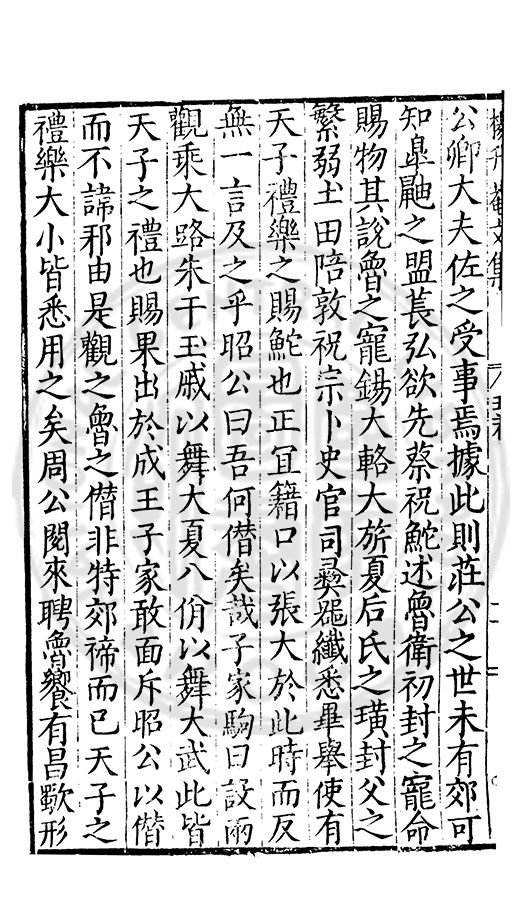 公卿大夫佐之受事焉據此則莊公之世未有郊可
知臯鼬之盟萇弘欲先蔡祝鮀述魯衛初封之寵命
賜物其說魯之寵錫大輅大旂夏后氏之璜封父之
繁弱土田陪敦祝宗卜史官司彞噐纖悉畢舉使有
天子禮樂之賜鮀也正宜籍口以張大於此時而反
無一言及之乎昭公曰吾何僣矣哉子家駒曰設兩
觀乘大路朱干玉戚以舞大夏八佾以舞大武此皆
天子之禮也賜果出於成王子家敢面斥昭公以僣
而不諱邪由是觀之魯之僣非特郊禘而已天子之
禮樂大小皆悉用之矣周公閱來聘魯饗有昌歜形